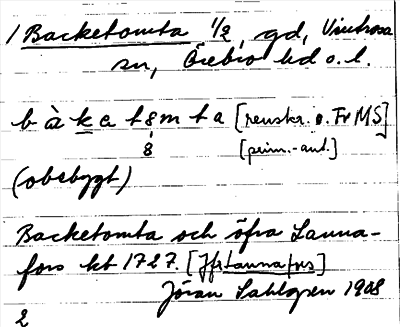 1 Backetomta 1/2, gd, Vintrosa
sn, Örebro hd o. l.
b à k e t 8 m t a [renskr. o. Fr MS]
8 [prim.-ant.]
(obebyggt)
Backetomta och öfra Launa-
fors kt 1727. [Jfr Launafors]
Jöran Sahlgren 1908
2